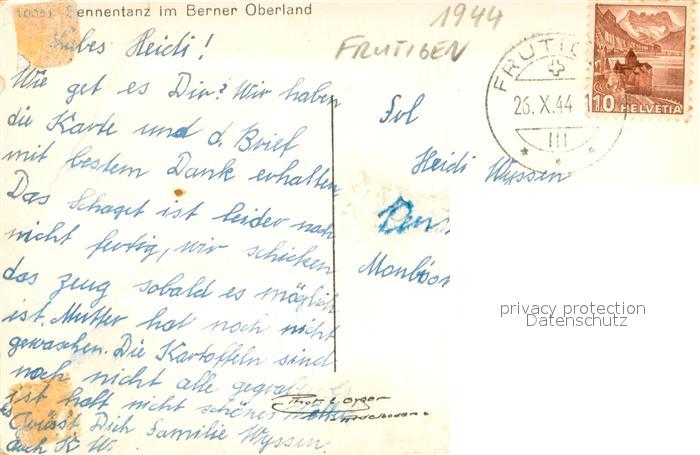 Sennentanz im Berner Oberland
1944
FRUTIGEN
Liebes Heidi!
Wie get es Dir? Wir haben
die Karte und d. Brief
mit bestem Dank erhalten
Das Schaget ist leider noch
nicht fertig, wir schicken
das zeug sobald es möglich
ist. Mutter hat noch nicht
gewaschen. Die Kartoffeln sind
noch nicht alle
ist halt nicht schönes
Grüsst Dich Familie Wyssen.
auch K. W.
Frl
Heidi Wyssen
FRUTIG
26. X. 44
III
10 HELVETIA
privacy protection
Datenschutz